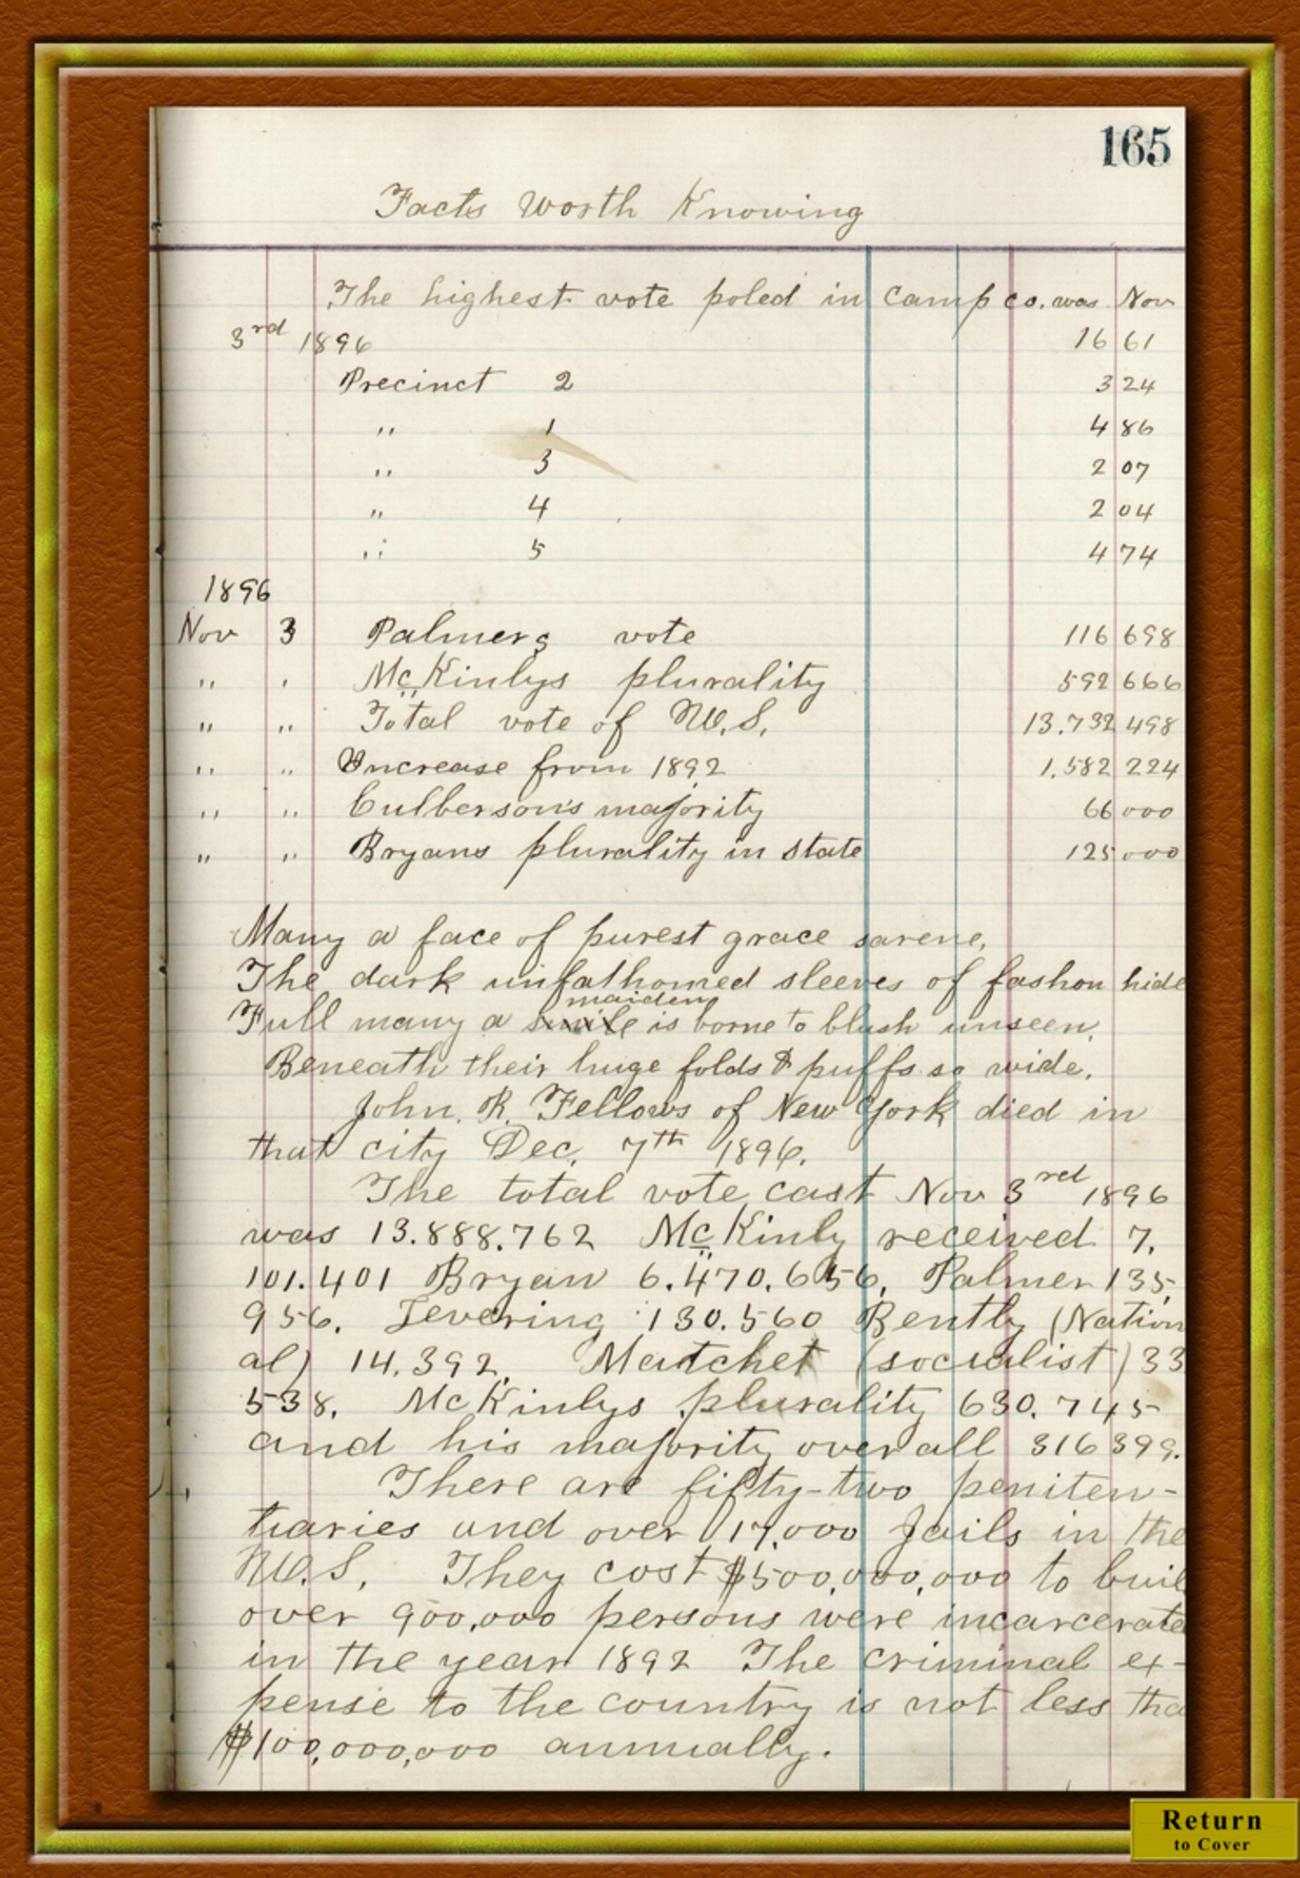 165
Facts Worth Knowing
The highest vote poled in Camp co. was Nov
3rd 1896 1661
Precinct 2 324
" 1 486
" 3 207
" 4 204
" 5 474
1896
Nov 3 Palmers vote 116 698
" " McKinlys plurality 592 666
" " Total vote of U.S. 13.732 498
" " Increase from 1892 1.582 224
" " Culberson's majority 66 000
" " Bryans plurality in state 125 000
Many a face of purest grace sarene,
The dark unfathomed sleeves of fashon hide
maiden
Full many a smile is borne to blush unseen,
Beneath their huge folds & puffs so wide.
John. R. Fellows of New York died in
that city Dec. 7th 1896.
The total vote cast Nov 3rd 1896
was 13.888.762 McKinly received 7.
101.401 Bryan 6.470.656, Palmer 135,
956. Levering 130.560 Bently (Nation
al) 14.392. Matchet (socialist) 33
538. McKinlys plurality 630.745
and his majority over all 316399.
There are fifty-two peniten-
tiaries and over 17,000 Jails in the
U.S. They cost $500,000,000 to buil
over 900,000 persons were incarcerate
in the year 1892 The criminal ex-
pense to the country is not less tha
$100,000,000 annually.
Return
to Cover